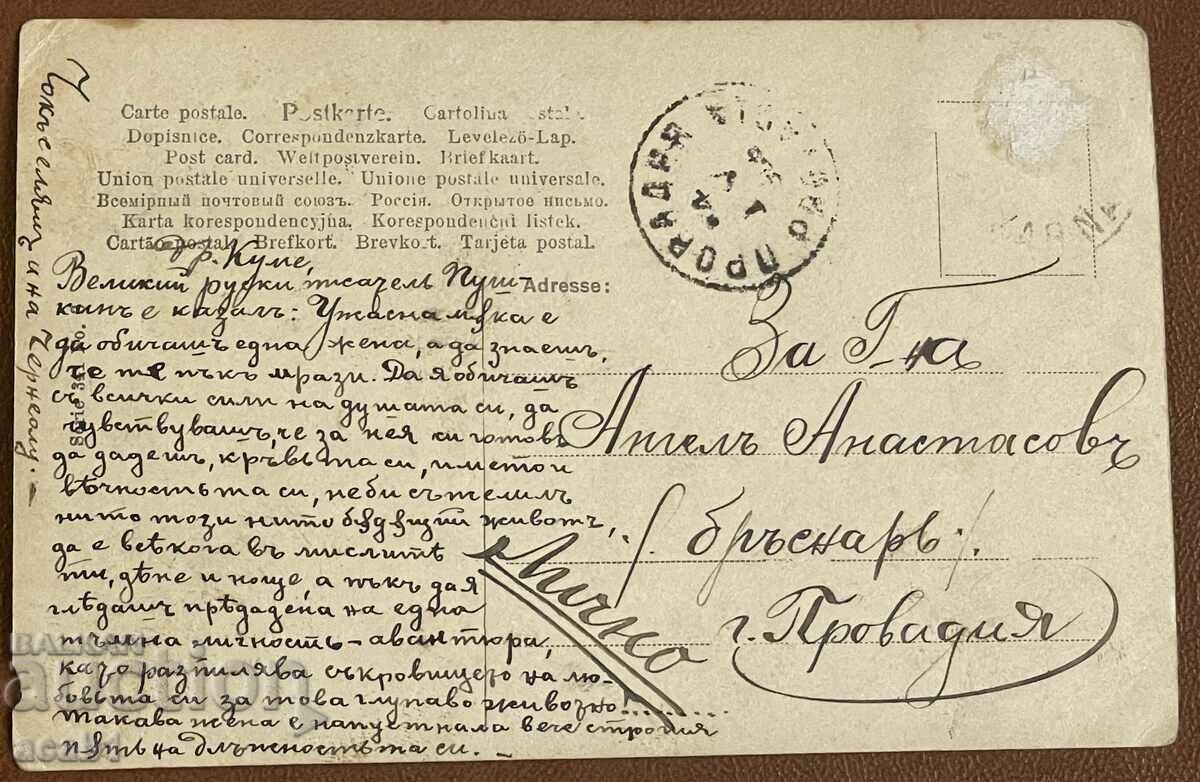 Carte postale. Postkarte. Cartolina postale.
Dopisnice. Correspondenzkarte. Levelező-Lap.
Post card. Weltpostverein. Briefkaart.
Union postale universelle. Unione postale universale.
Всемірный почтовый союзъ. Россія. Открытое письмо.
Karta korespondencyjna. Korespondenční listek.
Cartão postal. Brefkort. Brevkort. Tarjeta postal.
Adresse:
Др. Куме,
Великий руски писачель Пуш-
кинъ е казалъ: Ужасна мѫка е
да обичашъ една жена, а да знаешъ,
че те пъкъ мрази. Да я обичашъ
съ всички сили на душата си, да
чувствувашъ, че за нея си готовъ
да дадешъ, кръвьта си, името и
вѣчностьта си,
нито този нито бѫдѫщи животъ,
да е всѣкога въ мислитѣ
ти, дѣне и ноще, а пъкъ да я
глѣдашъ прѣдадена на една
тъмна личность - авантюра,
като разпилява съкровището на лю-
бовьта си за това глупаво животно!
Такава жена е напустнала вече
пѫть на длъжностьта си. -
и на
За Г-на
Ангелъ Анастасовъ
/. бръснарь ./
г. Провадия
Лично
ПРОВАДИЯ
VARNA
Serie No.
auction
aca84